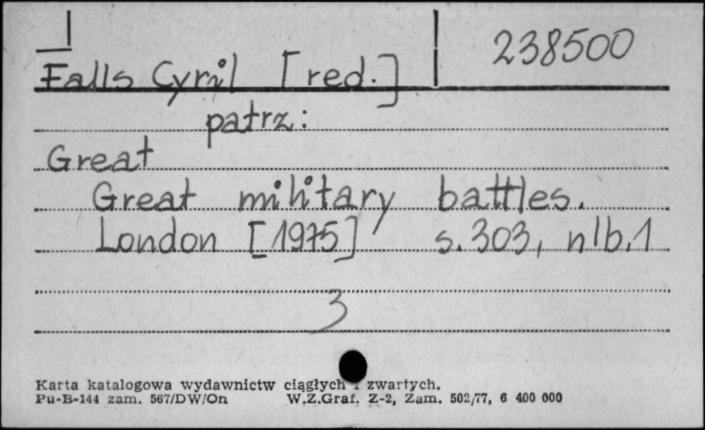 238500
Falls Cyril [red.]
patrz:
Great
Great military battles.
London [1975] s. 303, nlb. 1
3
Karta katalogowa wydawnictw ciągłych i zwartych.
Pu-B-144 zam. 567/DW/On W.Z.Graf. Z-2, Zam. 502/77, 6 400 000